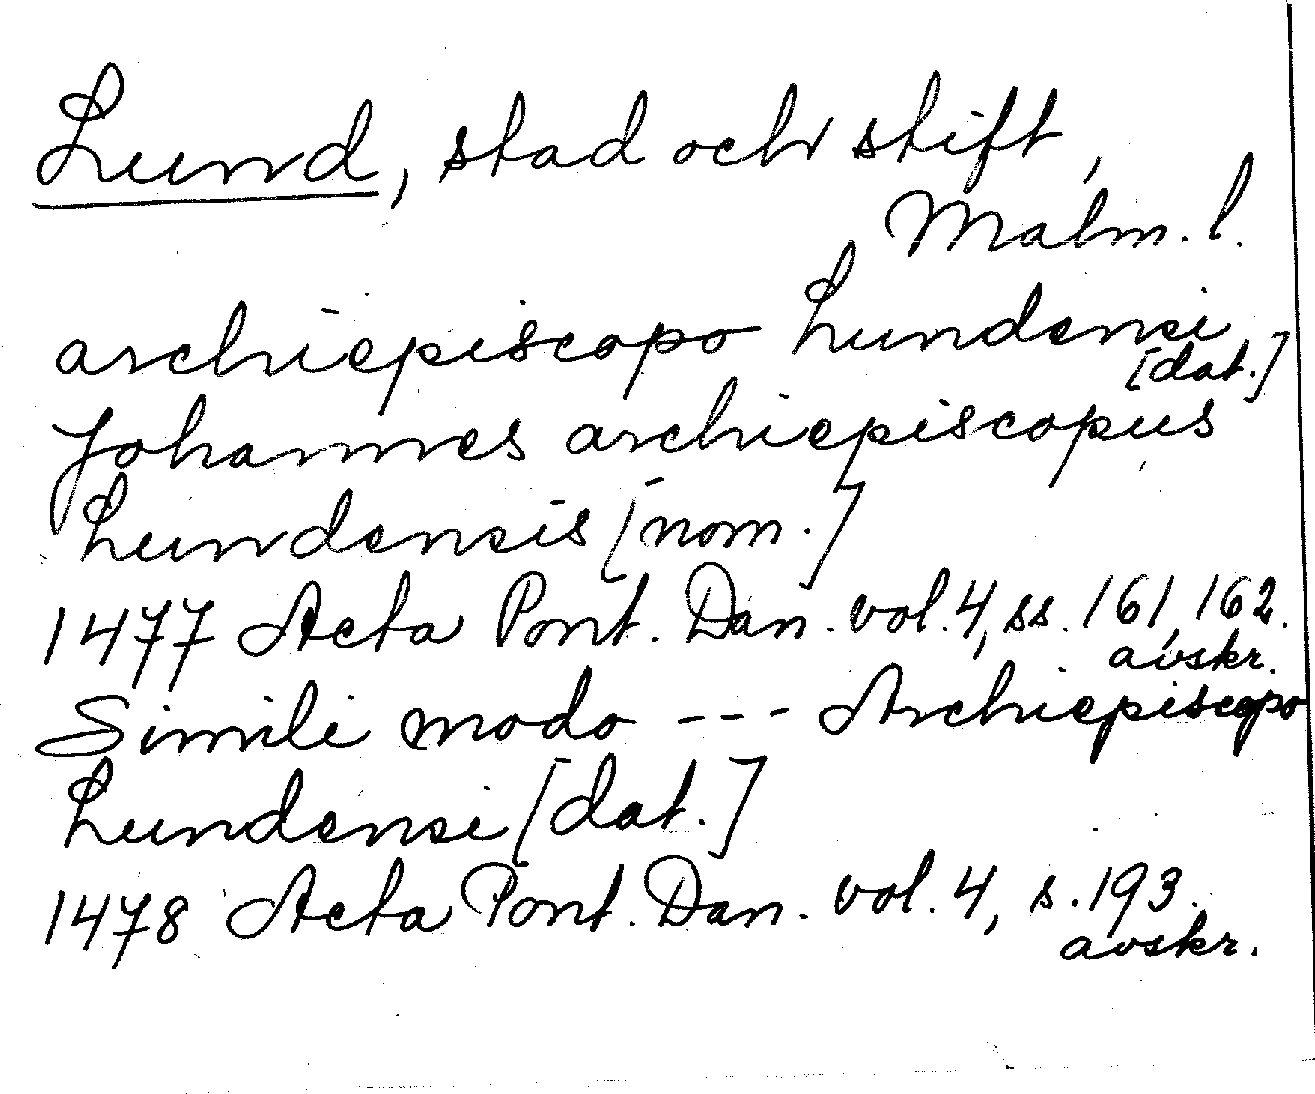 Lund, stad och stift,
Malm. l.
archiepiscopo Lundensi
[dat.]
Johannes archiepiscopus
Lundensis [nom.]
1477 Acta Pont. Dan. vol. 4, ss. 161, 162.
avskr.
Simili modo --- Archiepiscopo
Lundensi [dat.]
1478 Acta Pont. Dan. vol. 4, s. 193.
avskr.